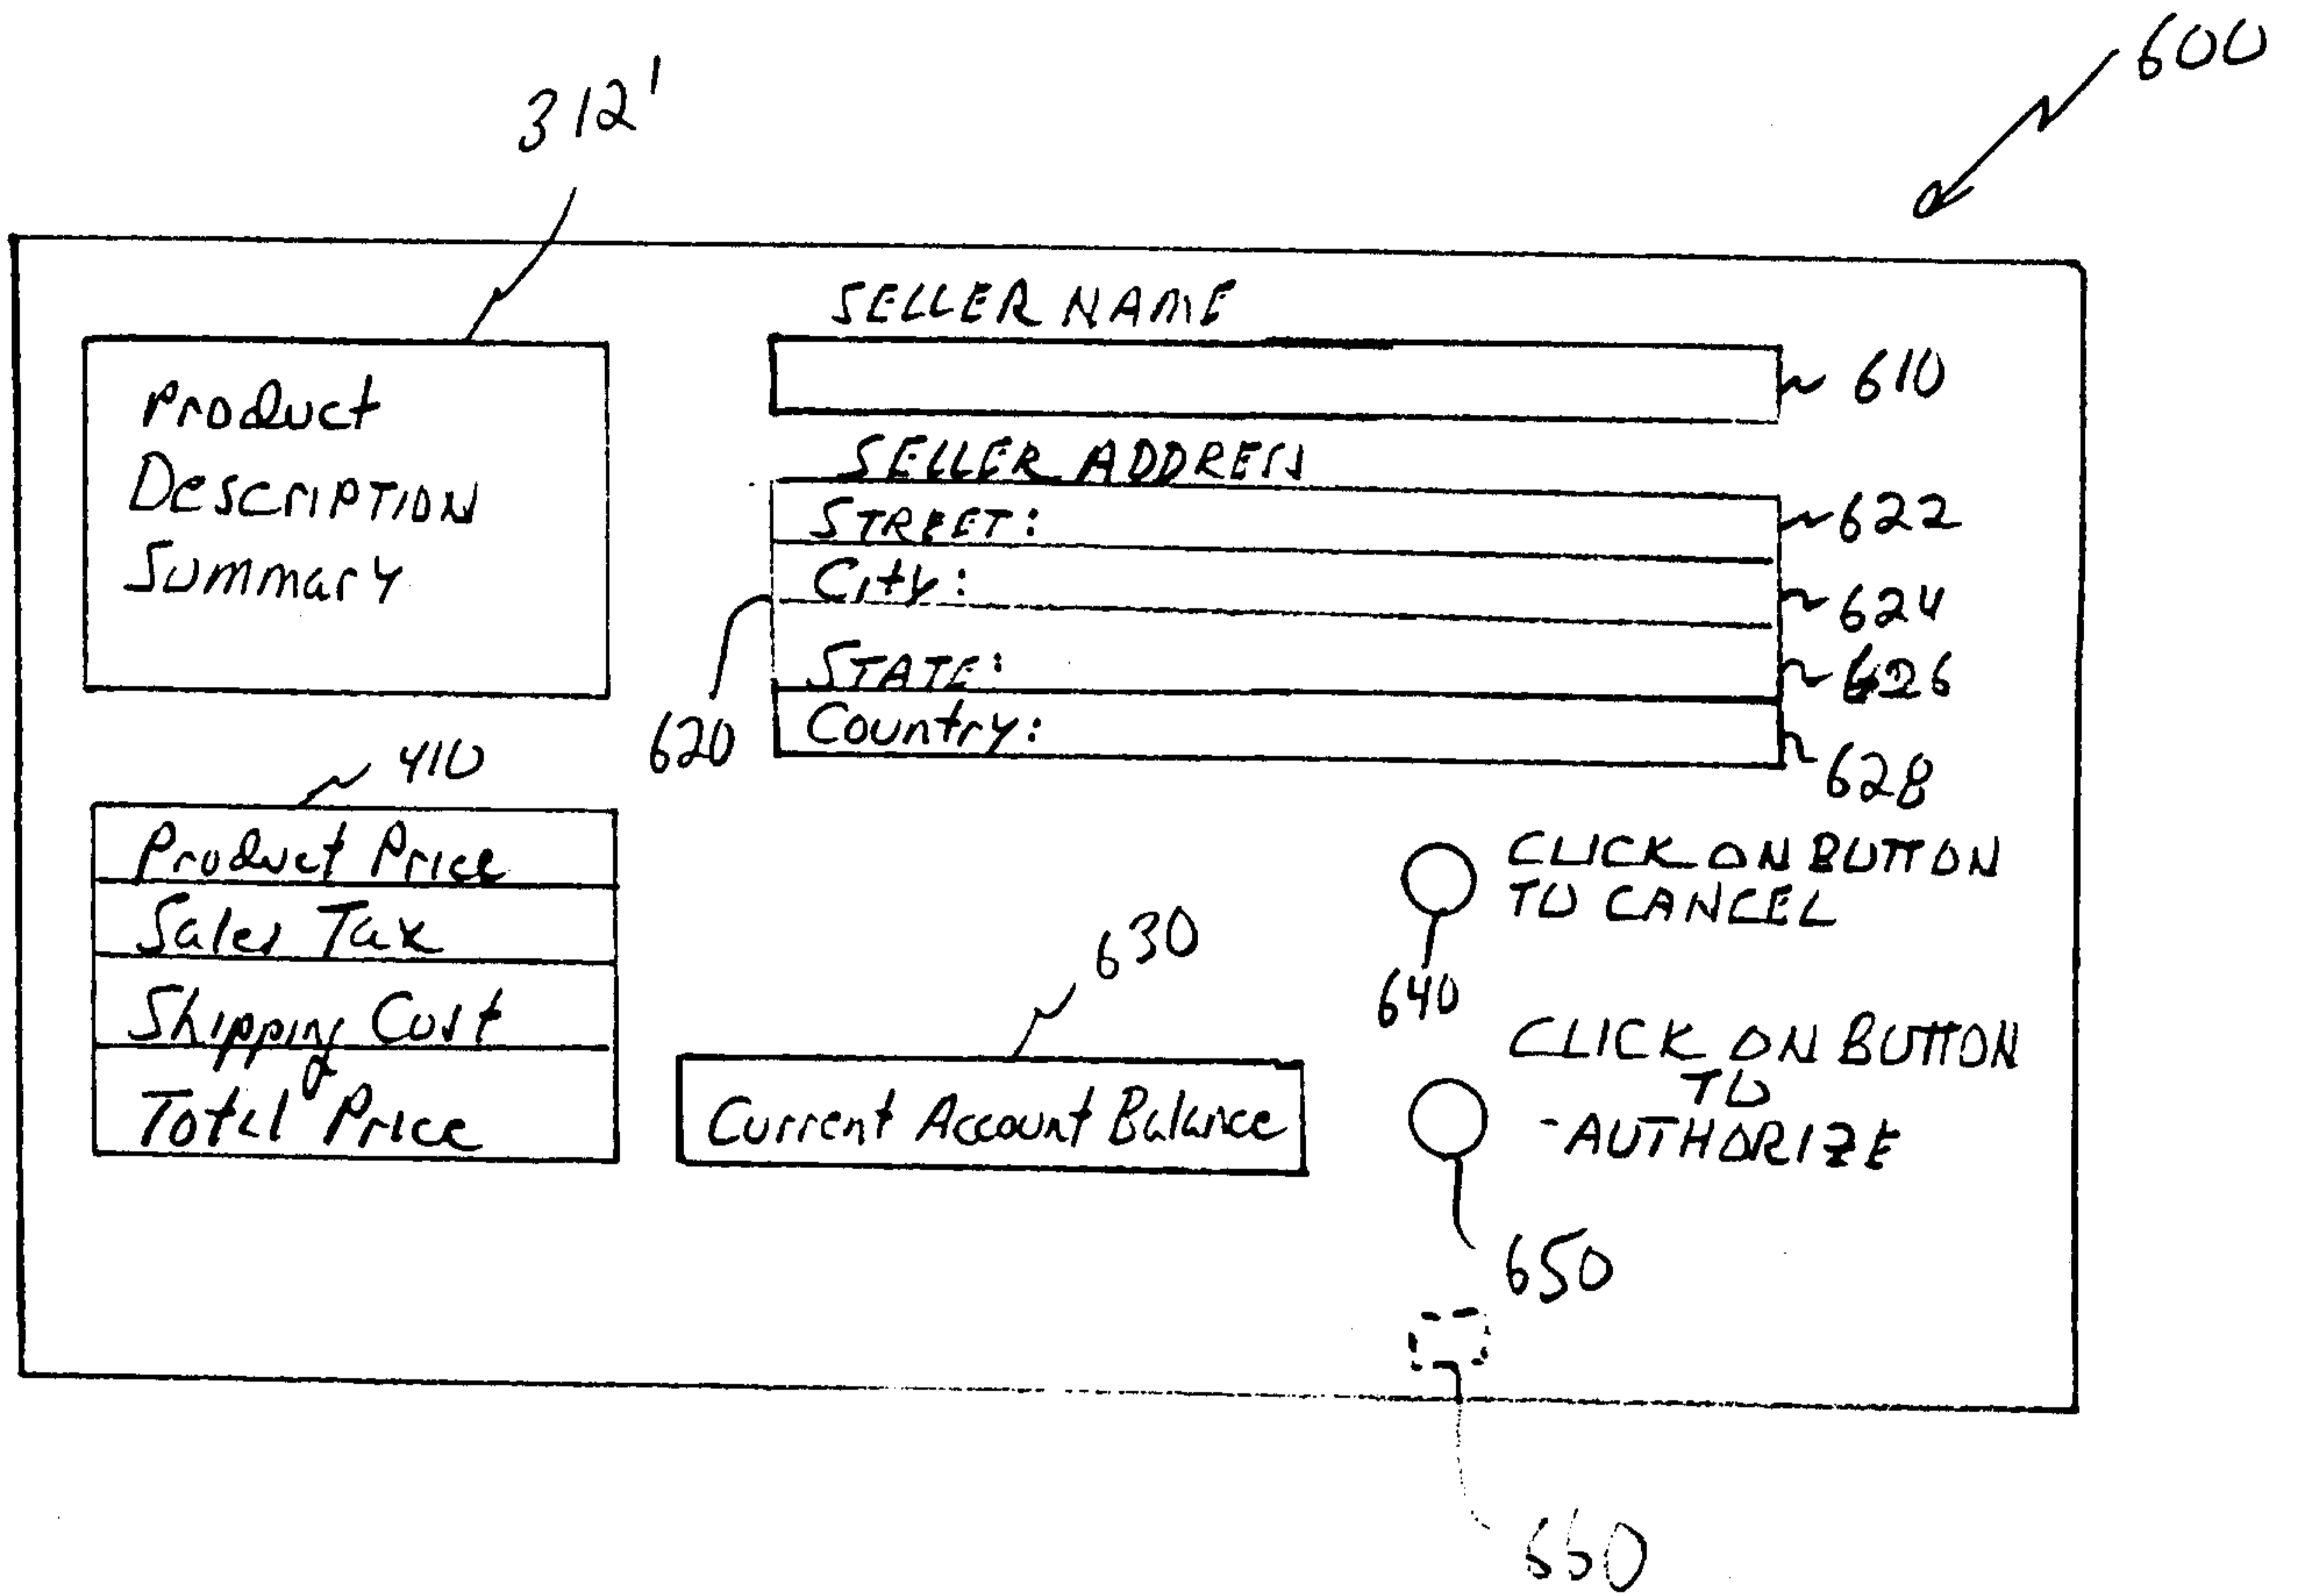 600
312'
SELLER NAME
610
Product
Description
Summary
SELLER ADDRESS
STREET:
622
City:
624
STATE:
626
Country:
628
620
410
Product Price
Sales Tax
Shipping Cost
Total Price
630
Current Account Balance
CLICK ON BUTTON
TO CANCEL
640
CLICK ON BUTTON
TO
AUTHORIZE
650
660